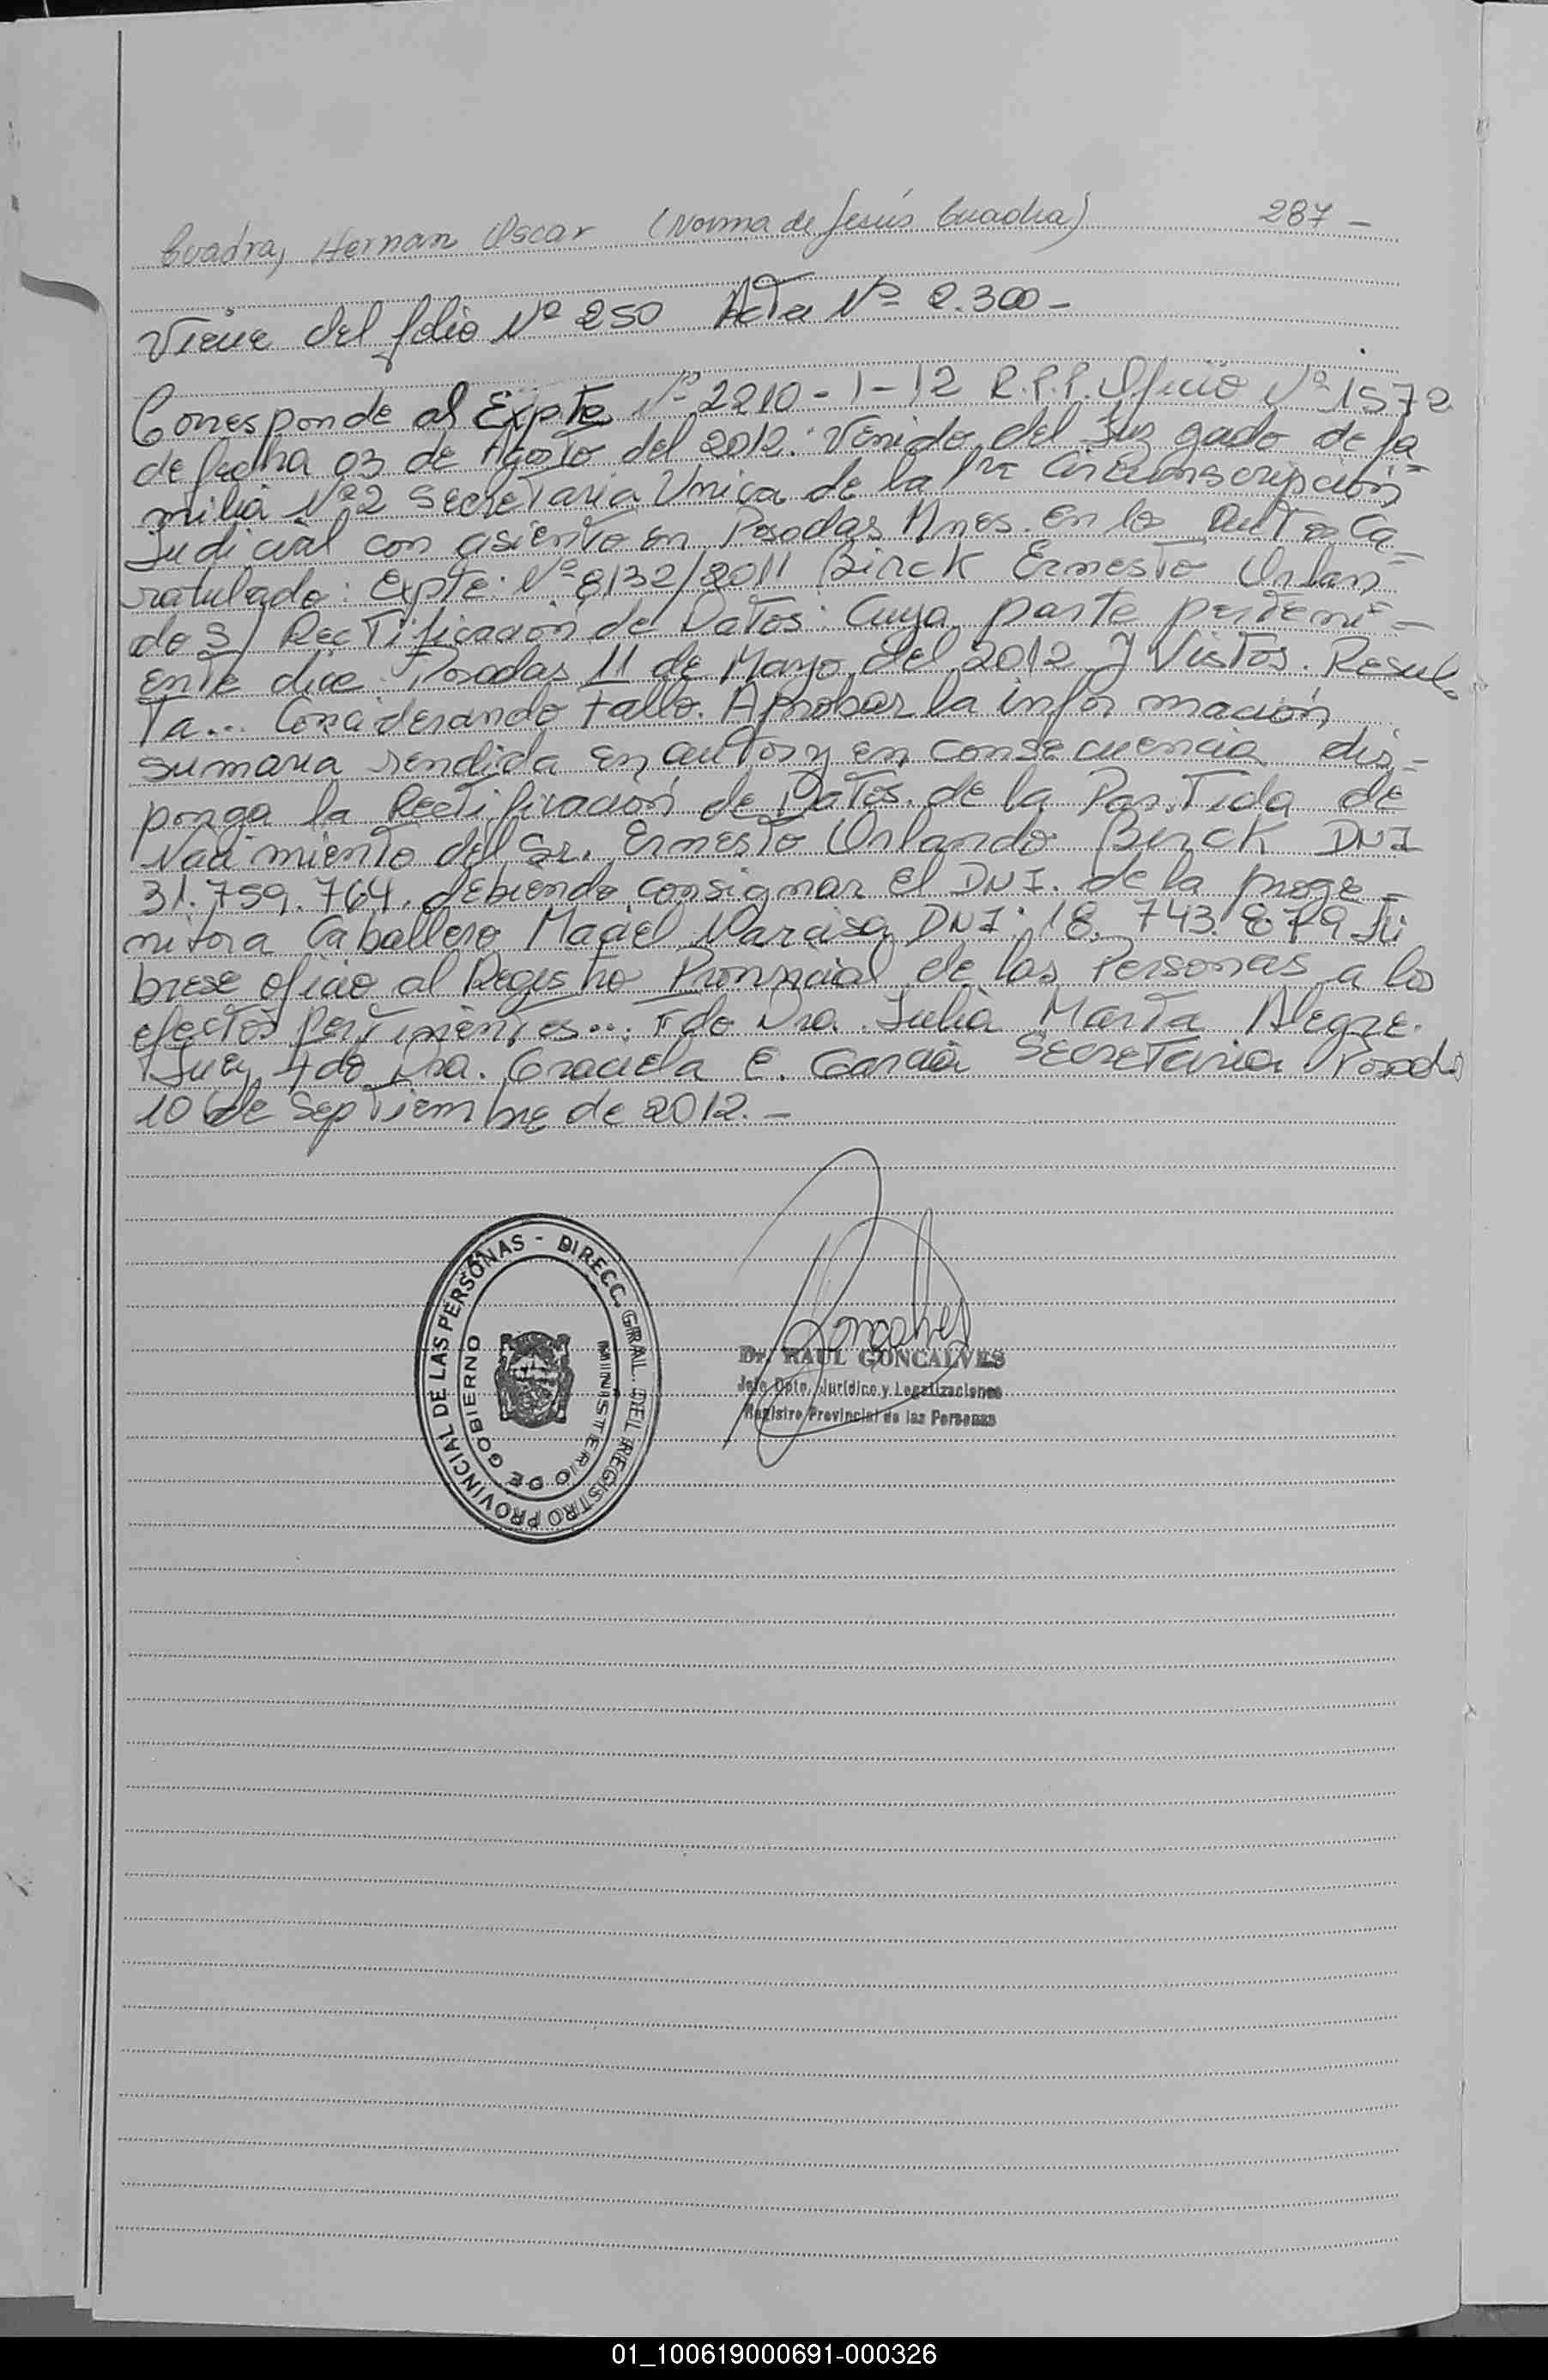 Cuadra, Hernan Oscar (Norma de Jesús Cuadra) 287 -
Viene del folio Nº 250 Acta Nº 2.300 -
Corresponde al Expte Nº 2210 - 1 - 12 R.P.P. Oficio Nº 1572
de fecha 03 de Agosto del 2012. Venido del Juz gado de fa
milia Nº 2 Secretaria Unica de la 1ra Circunscripcion
Judicial con asiento en Posadas Mnes. en los autos Ca-
ratulado: Expte. Nº 8132/2011 Birck Ernesto Orlan
do S/ Rectificación de Datos: Cuya parte perteni-
ente dice Posadas 11 de Mayo del 2012 Y Vistos. Resul-
Ta... Considerando Fallo. Aprobar la infor mación
sumaria rendida en autos y en consecuencia dis-
ponga la Rectificación de Datos. de la Partida de
Naci miento del Sr. Ernesto Orlando Birck DNI
31.759.764. debiendo consignar el DNI. de la proge-
nitora Caballero Maciel Narcisa DNI: 18. 743. 879 Li
brese oficio al Registro Provincial de las Personas a los
efectos Pertinentes... Fdo Dra. Julia Marta Alegre.
Juez Fdo Dra. Graciela E. Garcia Secretaria Posadas
10 de Septiembre de 2012. -
DIRECC. GRAL. DEL REGISTRO PROVINCIAL DE LAS PERSONAS -
MINISTERIO DE GOBIERNO
Goncalves
Dr. RAUL GONCALVES
Jefe Dpto. Jurídico y Legalizaciones
Registro Provincial de las Personas
01_100619000691-000326